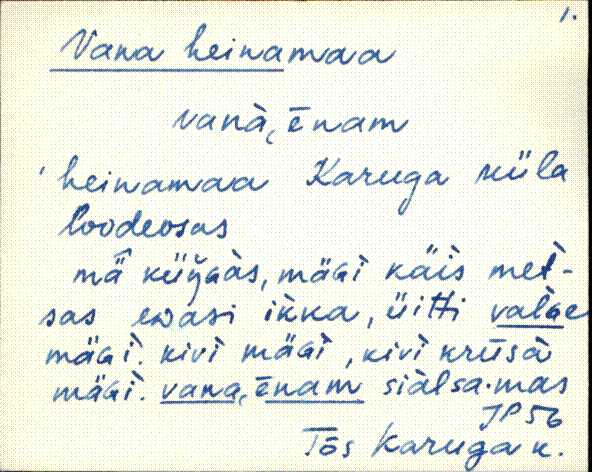 1.
Vana heinamaa
vanà, ēnam
heinamaa Karuga küla
loodeosas
mä̂ küŋ̀Gàs, mäGì käìs met̀-
sas edasi ik̀ka, üìtti valGe
mäGì. kivì mäGì, kivì krūsà
mäGì. vana, ēnam siàlsa·mas
JP56
Tōs Karuga k.